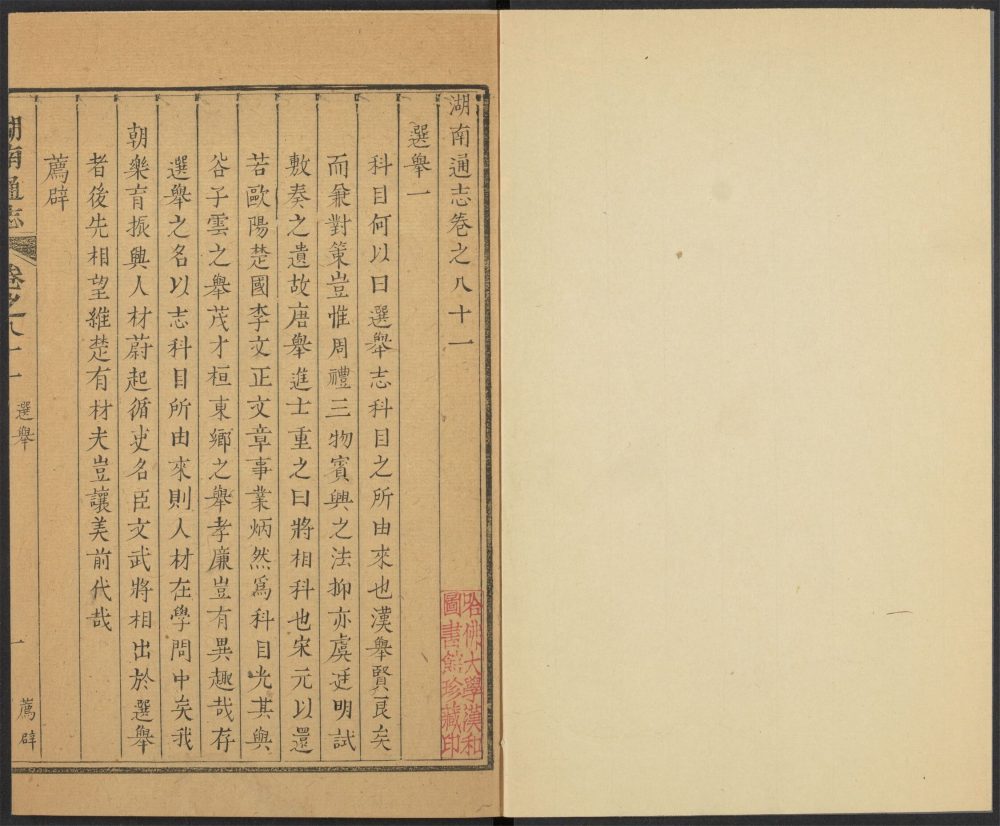 湖南通志卷之八十一
選舉一
科目何以曰選舉志科目之所由來也漢舉賢良矣
而兼對策豈惟周禮三物賓興之法抑亦虞廷明試
敷奏之遺故唐舉進士重之曰將相科也宋元以還
若歐陽楚國李文正文章事業炳然爲科目光其與
谷子雲之舉茂才桓東鄉之舉孝廉豈有異趣哉存
選舉之名以志科目所由來則人材在學問中矣我
朝樂育振興人材蔚起循吏名臣文武將相出於選舉
者後先相望維楚有材夫豈讓美前代哉
薦辟
湖南通志
卷之八十一
選舉
一
薦辟
哈佛大學漢和
圖書館珍藏印